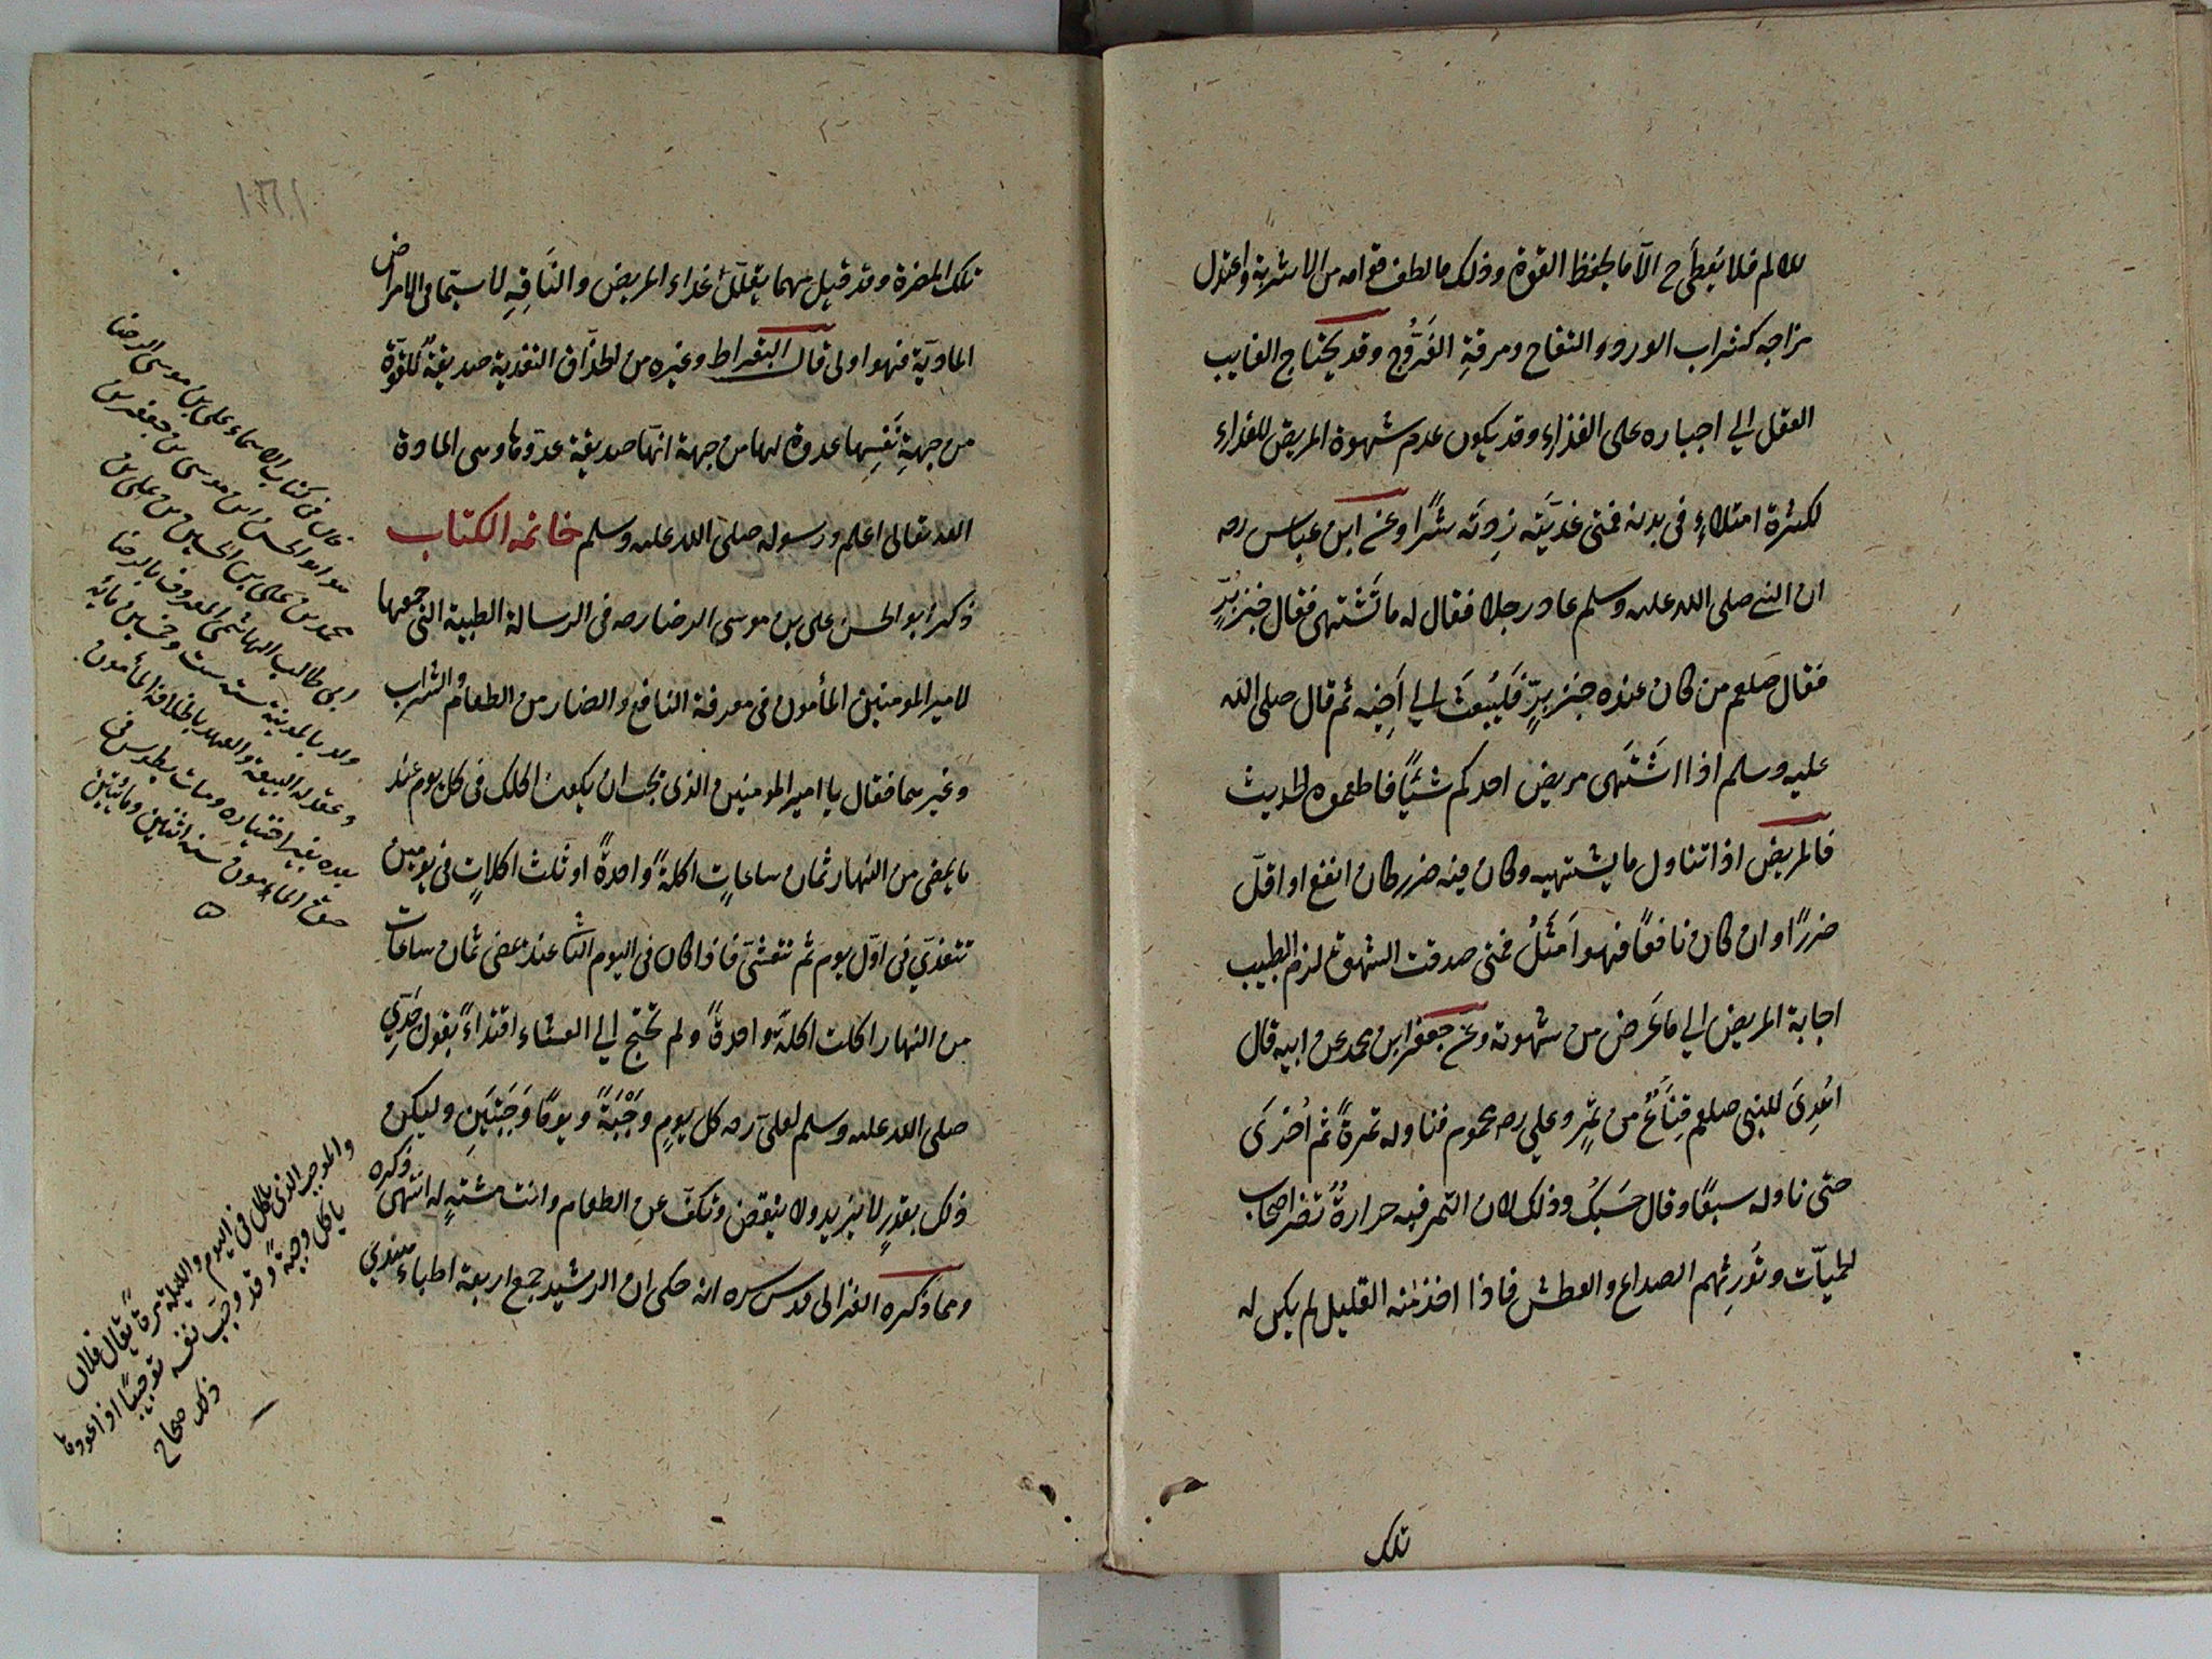 للالم فلا يُعطى ح الّا ما يحفظ القوة وذلك ما لطف قوامه من الاشربة واعتدل
مزاجه كشراب الورد والتفاح ومرقةِ الفَرُّوج وقد يحتاج الغايب
العقل الي اجباره على الغذاء وقد يكون عدم شهوة المريض للغذاء
لكثرة امتلاءٍ في بدنه فمتى غذيّتَه زِدتَه شرًا وعن ابن عباس رضه
ان النبي صلى الله عليه وسلم عاد رجلا فقال له ما تَشتَهى فقال خبز بُرٍّ
فقال صلعم من كان عنده خبز بُرٍّ فليَبْعَث الي اَخيه ثم قال صلى الله
عليه وسلم اذا اشتَهى مريض احدكم شيئًا فاطعموه الحديث
فالمريض اذا تناول ما يشتهيه وكان فيه ضرر كان انفع او اقلّ
ضررًا وان كان نافعًا فهو اَمثَلُ فمتى صدقت الشهوة لزم الطبيب
اجابة المريض الي ما عَرَض من شهوته وعن جعفر ابن محمد عن ابيه قال
اُهْدِىَ للنبي صلعم قِنَاعٌ من تمرٍ وعلي رضه محموم فناوله تمرةً ثم اُخْرَى
حتى ناوله سبعًا وقال حَسبُكَ وذلك لان التمر فيه حرارةٌ تضر اصحاب
الحميّات وتُورِثهم الصداع والعطش فاذا اخذ منه القليل لم يكن له
تلك
تلك المضرة وقد قيل مهما يقلّل غذاء المريض والنَاقِهِ لا سيّما في الامراض
الماديّة فهو اولى قال البقراط وغيره من الحذّاق التغذية صديقةٌ للقوّة
من جهةِ نَفسِها عدوة لها من جهة انها صديقة عدوّها وهى المادة
الله تعالى اعلم ورسوله صلى الله عليه وسلم خاتمة الكتاب
ذكر ابو الحسن على بن موسى الرضا رضه فى الرسالة الطبية التى جمعها
لامير المومنين المأمون فى معرفة النافع والضار من الطعام والشراب
وغيرهما فقال يا امير المومنين الذى يجب ان يكون اكلك فى كل يوم عند
ما يمضى من النهار ثمان ساعاتٍ اكلةً واحدةً او ثلث اكلاتٍ فى يومين
تتغذّي فى اوّل يوم ثم تتعشّى فاذا كان فى اليوم الثا عند مضى ثمان ساعات
من النهار اكلت اكلةً واحدةً ولم تحتج الي العشاء اقتداءً بقول جَدِّي
صلى الله عليه وسلم لعليّ رضه كل يومٍ وَجْبَةً ويومًا وَجبَتَينِ وليكن
ذلك بقدرٍ لا يزيد ولا ينقص وتكفّ عن الطعام وانت مشتهٍ له انتهى ذكره
ومما ذكره الغزالى قدس سره انه حكى ان الرشيد جمع اربعة اطباء هندي
قال فى كتاب الاسماء على بن موسى الرضا
هو ابو الحسن ابن موسى بن جعفر بن
محمد بن على بن الحسين بن على بن
ابى طالب الهاشمى المعروف بالرضا
ولد بالمدينة سنه ست وخمسين مائة
وعقد له البيعة والعهد بالخلافة المأمون
بعده بغير اختياره ومات بطوس فى
المامون سنه اثنين ومائتين
يأكل فى اليوم والليلة مرةً يقال فلان
ياكل وجبةً وقد وجّب نفسه توجيبًا اذا عودها
ذلك صحاح